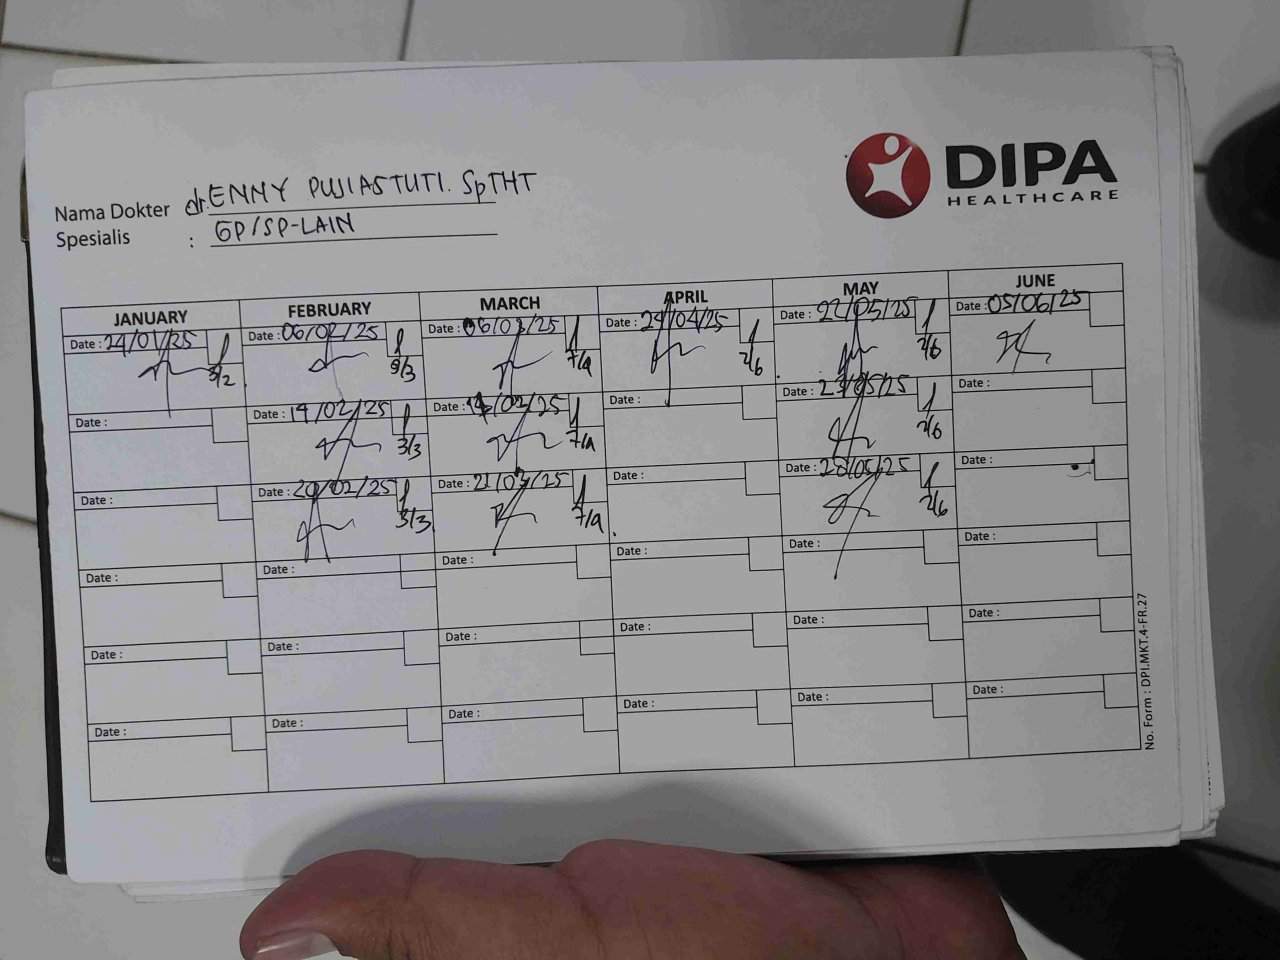 DIPA
HEALTHCARE
Nama Dokter dr. ENNY PUJIASTUTI. SpTHT
Spesialis : GP/SP-LAIN
JANUARY FEBRUARY MARCH APRIL MAY JUNE
Date : 24/01/25 Date : 06/02/25 Date : 06/03/25 Date : 24/04/25 Date : 22/05/25 Date : 05/06/25
3/2 3/3 7/4 2/6 2/6
Date : Date : 14/02/25 Date : 14/03/25 Date : Date : 27/05/25 Date :
3/3 7/4 2/6
Date : Date : 20/02/25 Date : 21/03/25 Date : Date : 28/05/25 Date :
3/3 7/4 2/6
Date : Date : Date : Date : Date : Date :
Date : Date : Date : Date : Date : Date :
Date : Date : Date : Date : Date : Date :
No. Form : DPI.MKT.4-FR.27